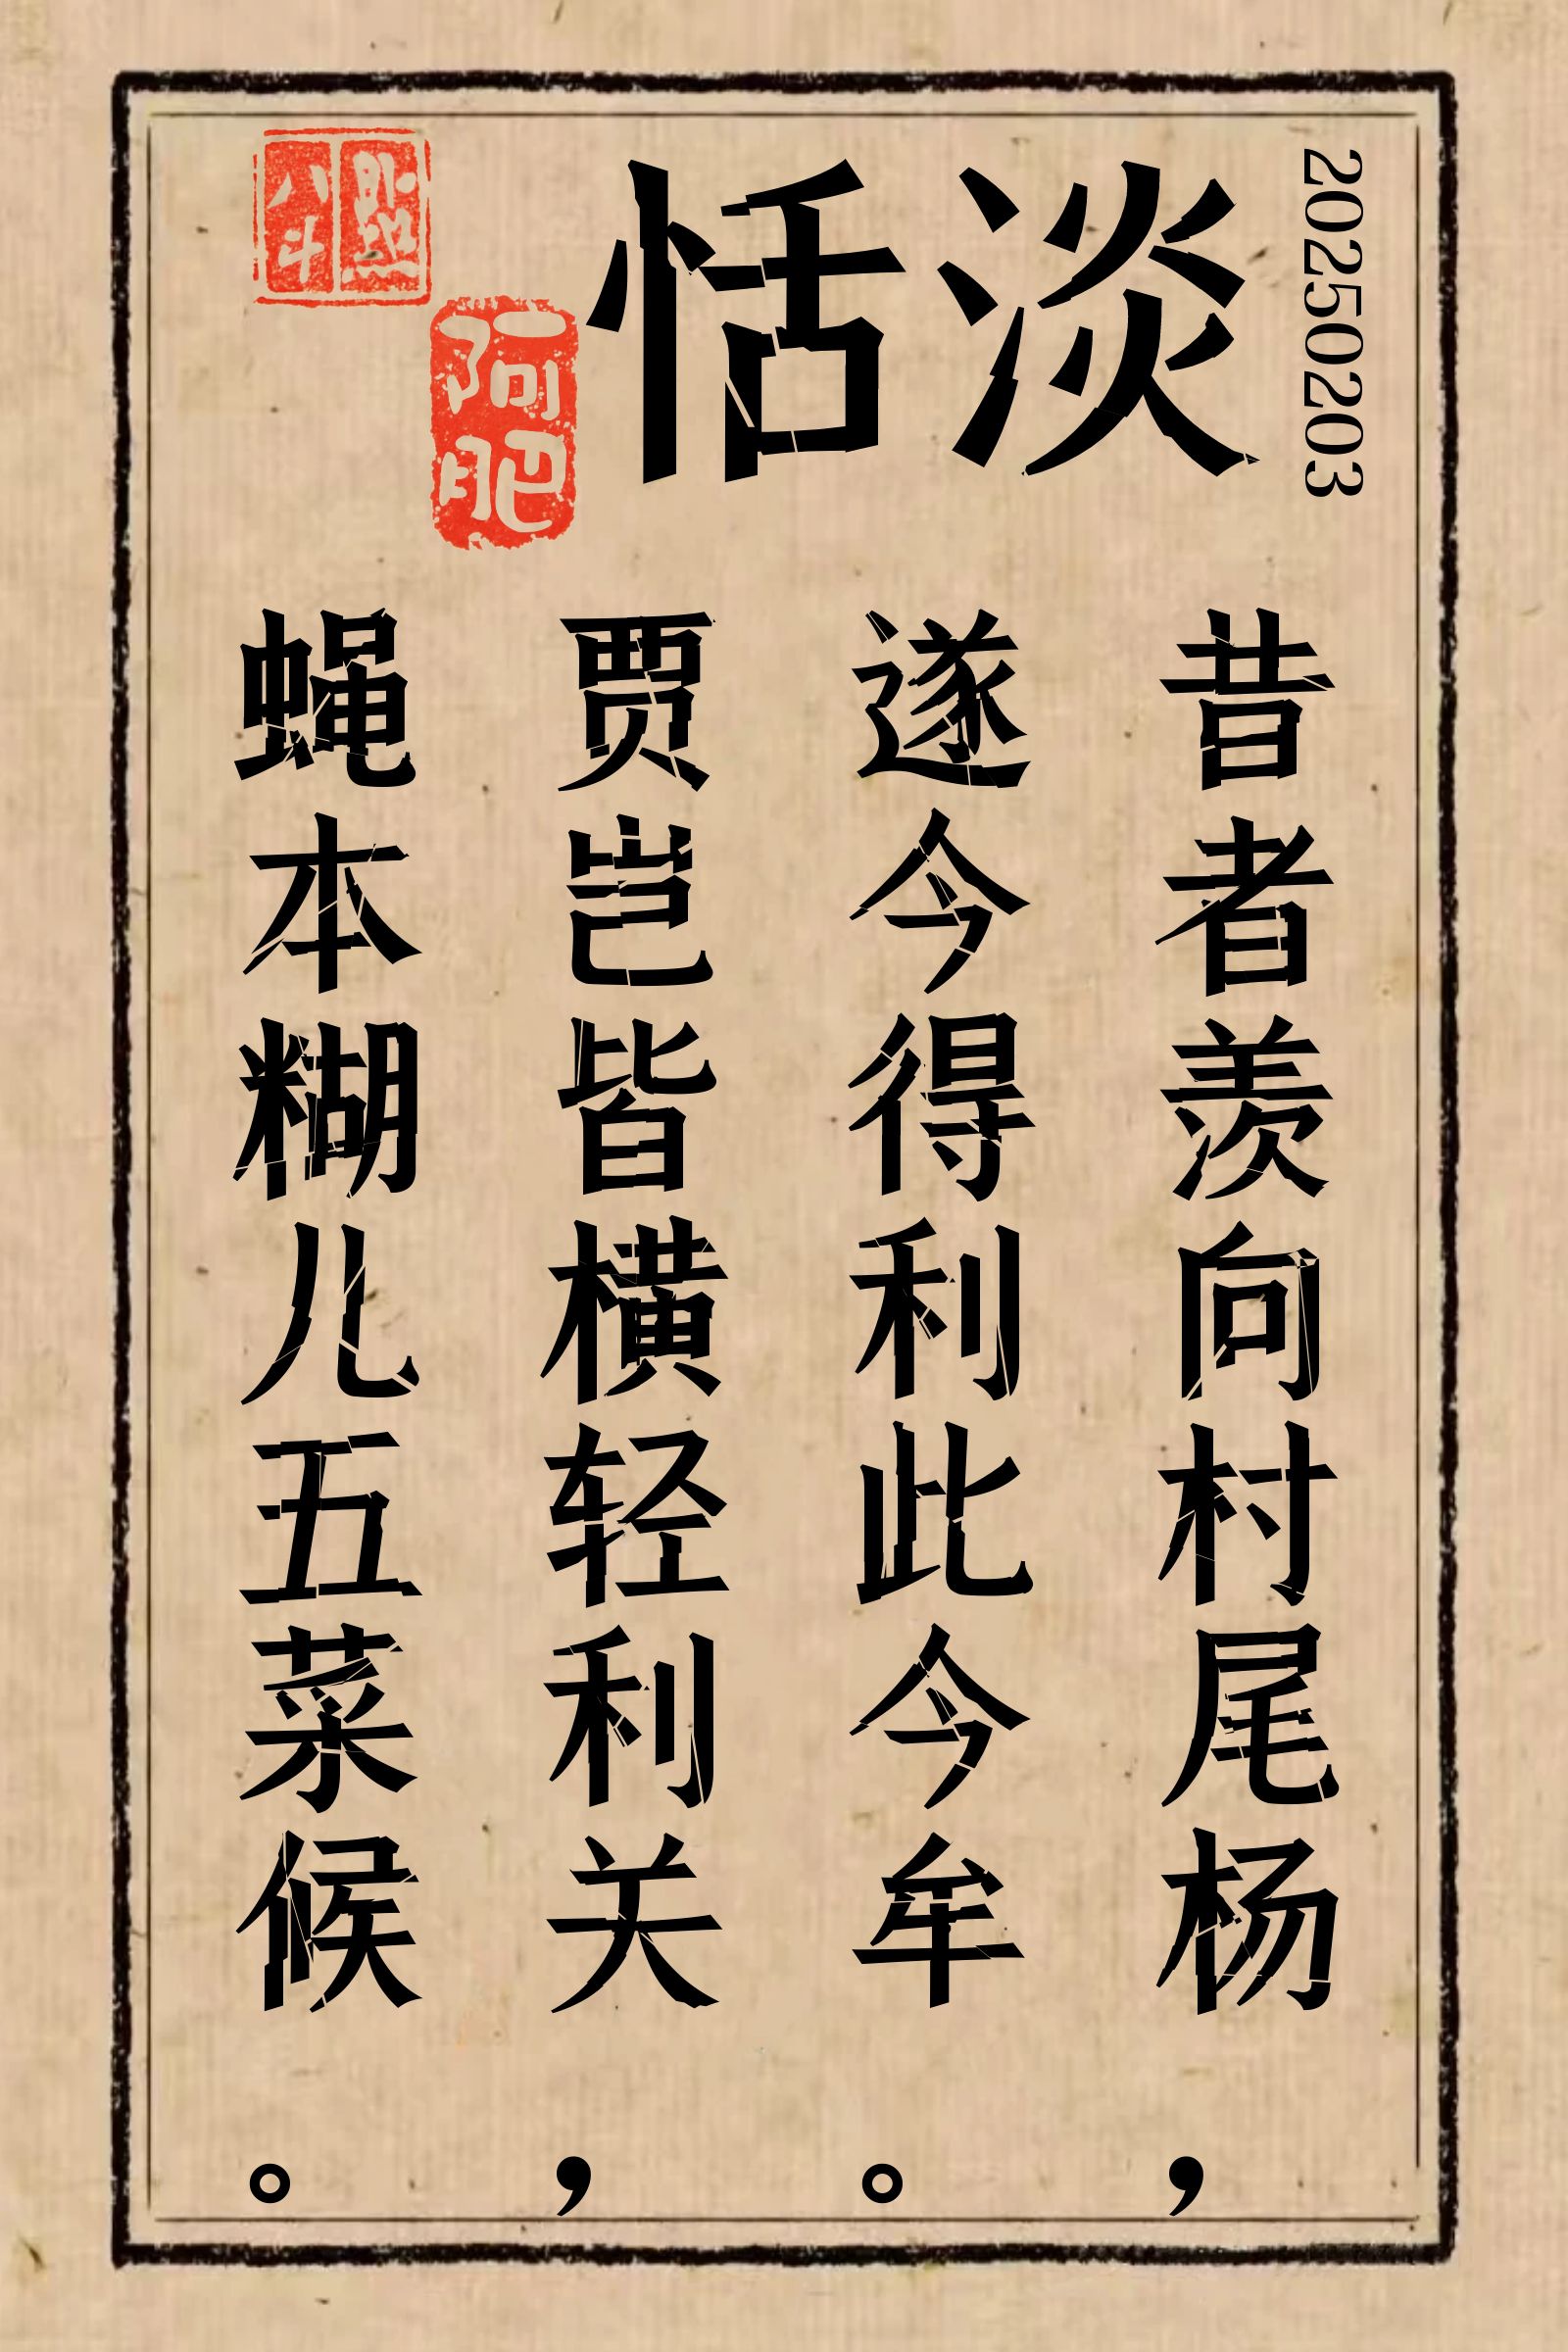 20250203
淡恬
昔者羡向村尾杨，
遂今得利此今牟。
贾岂皆横轻利关，
蝇本糊儿五菜候。
阿肥
八斗